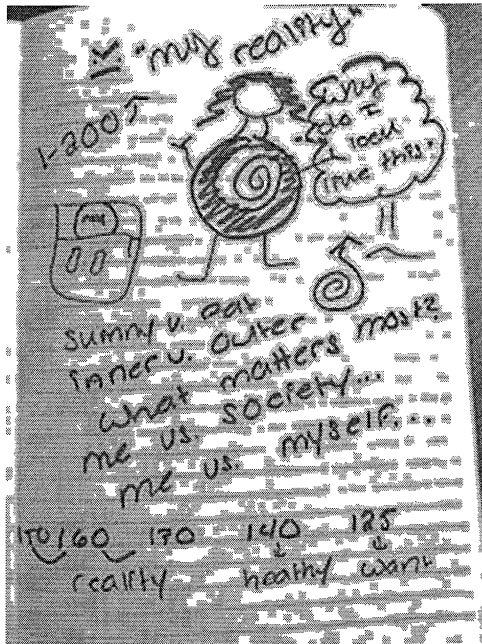 "my reality"
1-200
why
do I
look
like this"
me
00
v.
inner v. outer
what matters most?
me vs. society...
me vs. myself...
160 170 140 125
reality healthy want